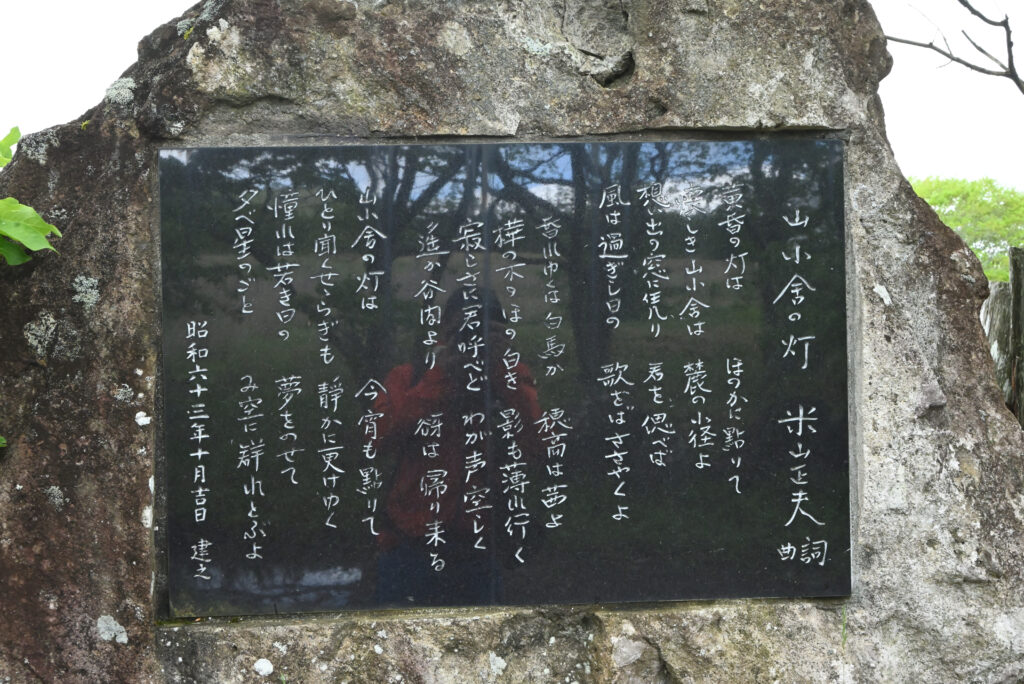 山小舎の灯　米山正夫　詞曲
黄昏の灯は　ほのかに點りて
懐しき山小舎は　麓の小径よ
想い出の窓に凭り　君を偲べば
風は過ぎし日の　歌をばささやくよ
昏れゆくは白馬か　穂高は茜よ
樺の木のほの白き　影も薄れ行く
寂しさに君呼べど　わが声空しく
遥か谷間より　谺は帰り来る
山小舎の灯は　今宵も點りて
ひとり聞くせゝらぎも　静かに更けゆく
憧れは若き日の　夢をのせて
夕べ星のごと　み空に群れとぶよ
昭和六十三年十月吉日　建之